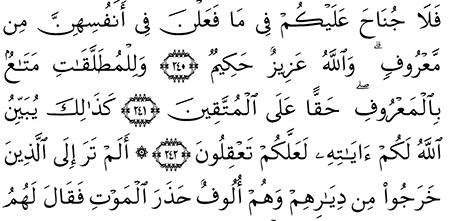 فَلَا جُنَاحَ عَلَيْكُمْ فِى مَا فَعَلْنَ فِىٓ أَنفُسِهِنَّ مِن
مَّعْرُوفٍۢ ۗ وَٱللَّهُ عَزِيزٌ حَكِيمٌۭ ﴿٢٤٠﴾ وَلِلْمُطَلَّقَـٰتِ مَتَـٰعٌۢ
بِٱلْمَعْرُوفِ ۖ حَقًّا عَلَى ٱلْمُتَّقِينَ ﴿٢٤١﴾ كَذَٰلِكَ يُبَيِّنُ
ٱللَّهُ لَكُمْ ءَايَـٰتِهِۦ لَعَلَّكُمْ تَعْقِلُونَ ﴿٢٤٢﴾ ۞ أَلَمْ تَرَ إِلَى ٱلَّذِينَ
خَرَجُوا۟ مِن دِيَـٰرِهِمْ وَهُمْ أُلُوفٌ حَذَرَ ٱلْمَوْتِ فَقَالَ لَهُمُ